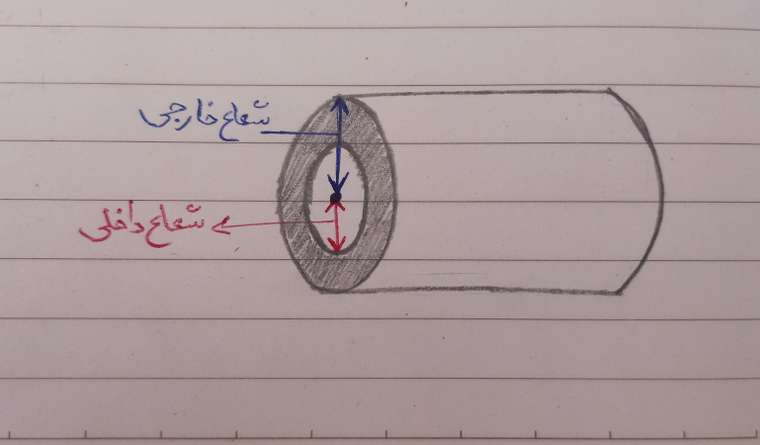 شعاع خارجی
شعاع داخلی